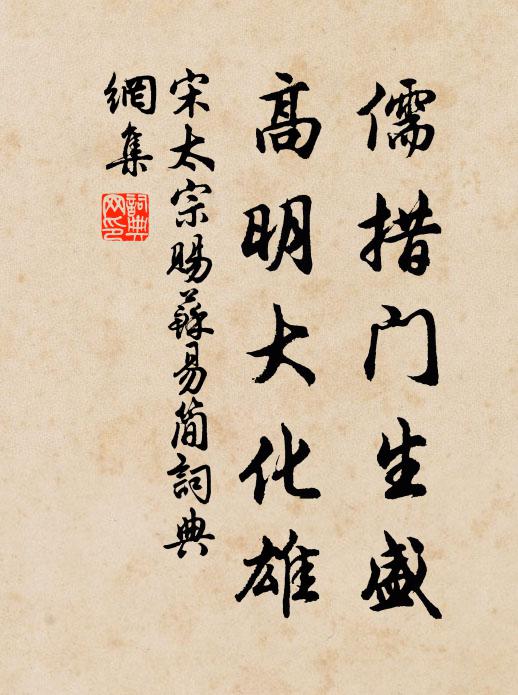 儒措門生盛
高明大化雄
宋太宗賜蘇易簡詞典
網集
詞典
网印